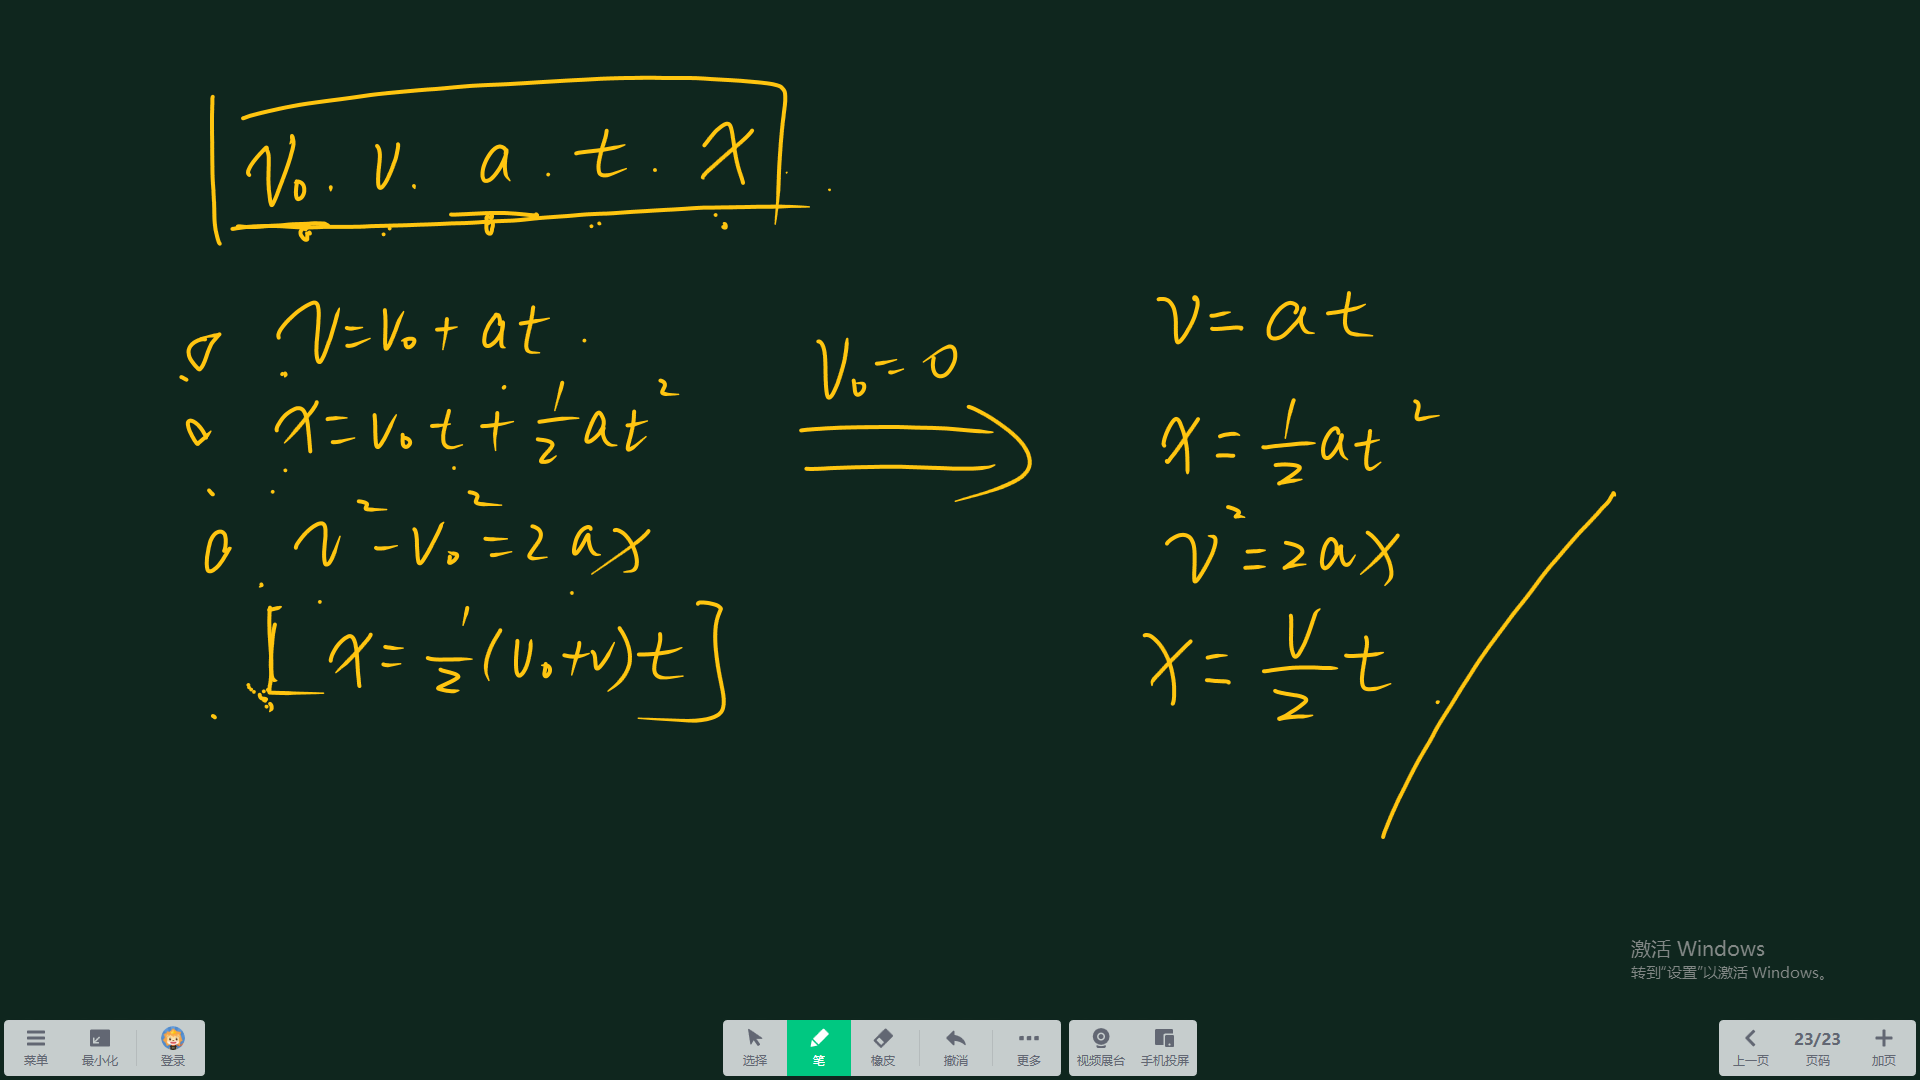 v₀. v. a. t. x.
v=v₀+at.
x=v₀t+½at²
v²-v₀²=2ax
[x=½(v₀+v)t]
v₀=0
v=at
x=½at²
v²=2ax
x=v/2 t
激活 Windows
转到“设置”以激活 Windows。
菜单 最小化 登录
选择 笔 橡皮 撤消 更多
视频展台 手机投屏
上一页 23/23 页码 加页